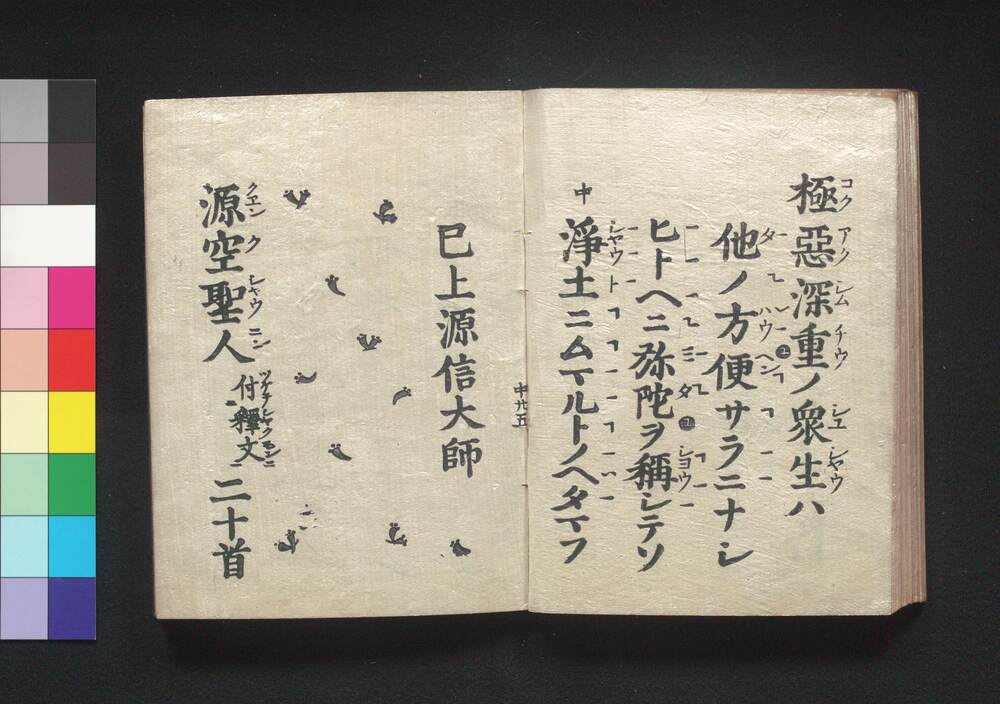 極惡深重ノ衆生ハ
他ノ方便サラニナシ
ヒトヘニ弥陀ヲ稱シテソ
中 淨土ニムマルトノヘタマフ
中廿五
已上源信大師
源空聖人 付釋文 二十首